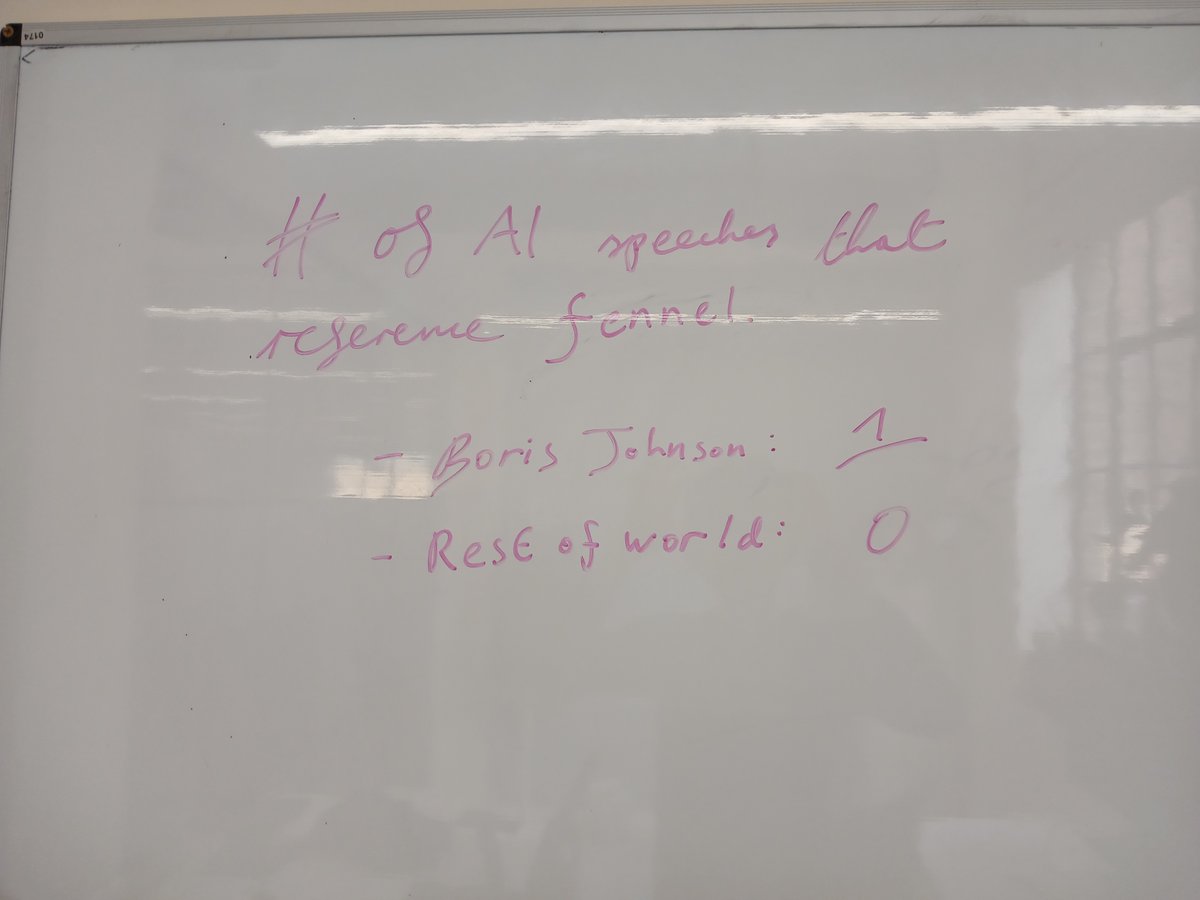 0174
# of AI speeches that
reference fennel.
- Boris Johnson: 1
- Rest of world: 0